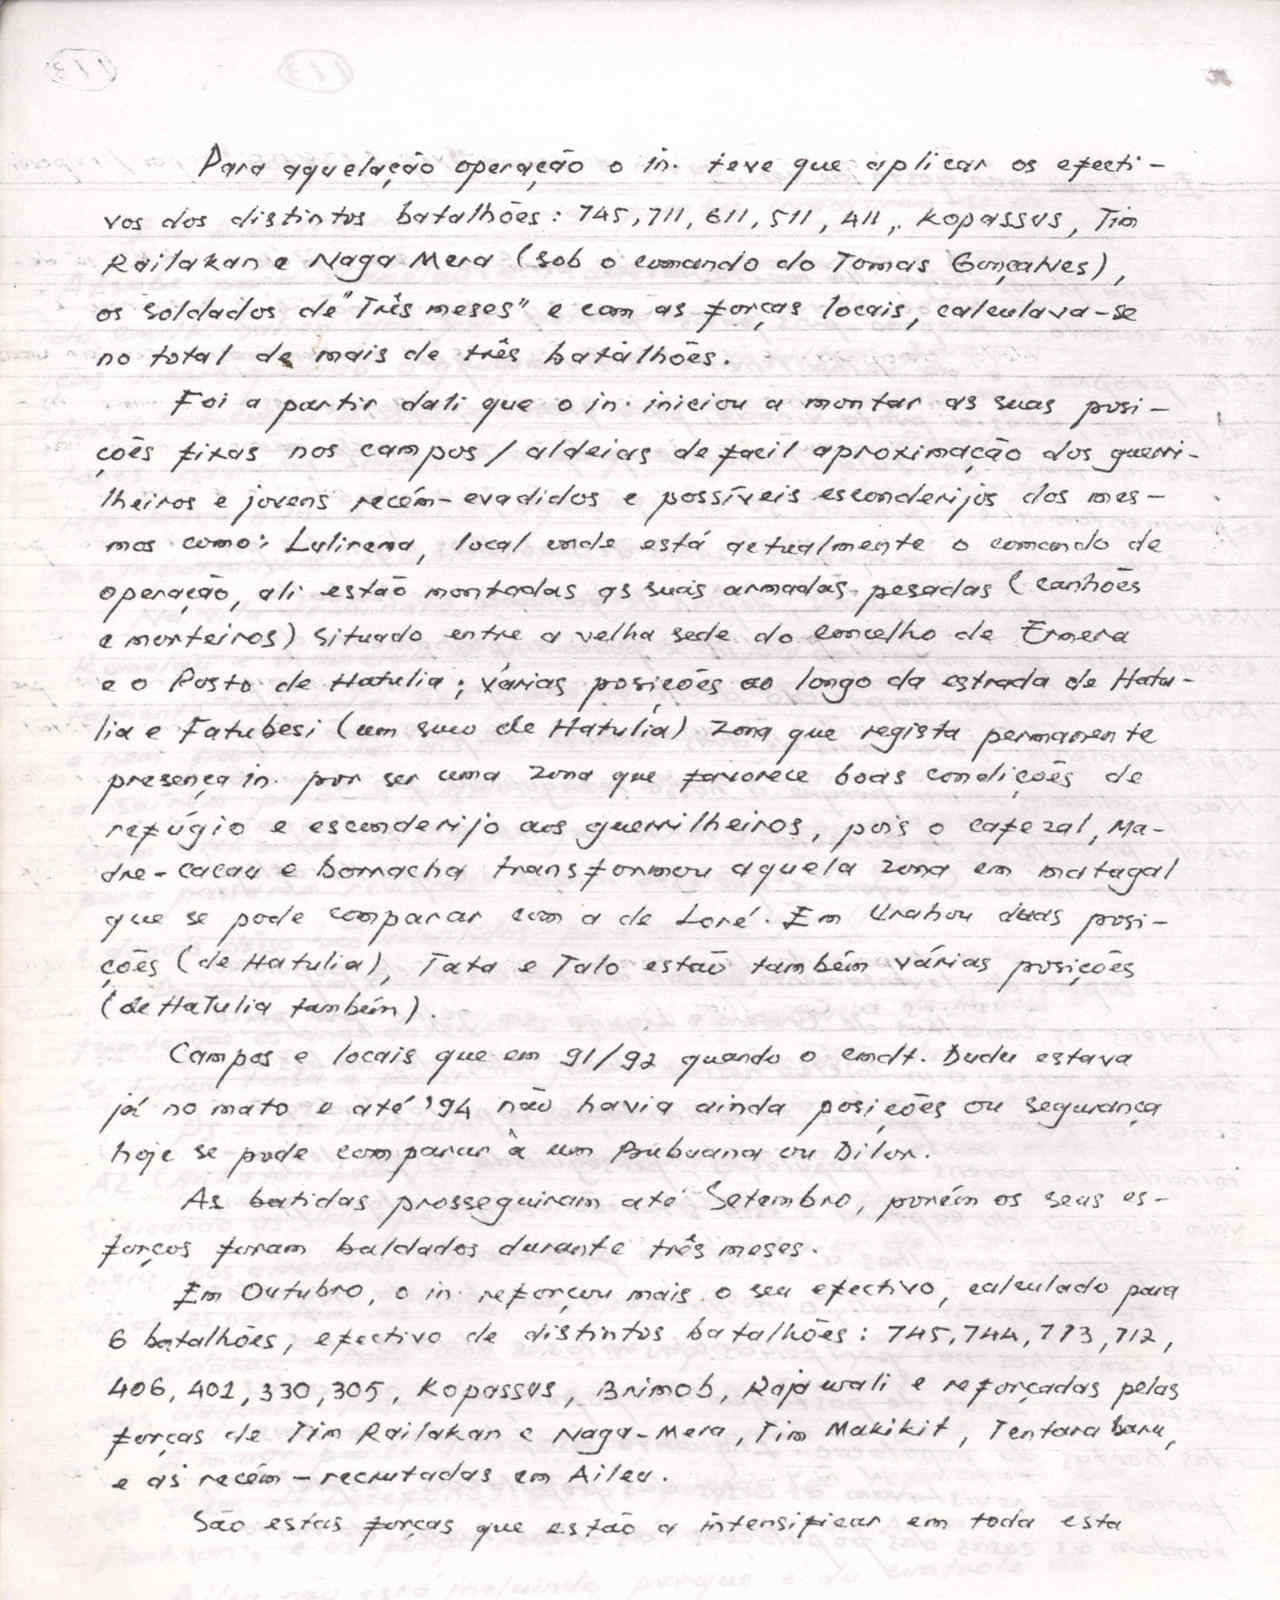 Para aquelação operação o in. teve que aplicar os efecti-
vos dos distintos batalhões: 745, 711, 611, 511, 411, Kopassus, Tim
Railakan e Naga Mera (sob o comando do Tomas Gonçalves),
os soldados de "Três meses" e com as forças locais, calculava-se
no total de mais de três batalhões.
Foi a partir dali que o in. iniciou a montar as suas posi-
ções fixas nos campos/aldeias de facil aproximação dos guerri-
lheiros e jovens recém-evadidos e possíveis esconderijos dos mes-
mos como: Lulirema, local onde está actualmente o comando de
operação, ali estão montadas as suas armadas pesadas (canhões
e morteiros) situado entre a velha sede do concelho de Ermera
e o Posto de Hatulia; várias posições ao longo da estrada de Hatu-
lia e Fatubesi (um suco de Hatulia) zona que regista permanente
presença in. por ser uma zona que favorece boas condições de
refúgio e esconderijo aos guerrilheiros, pois o cafezal, Ma-
dre-cacau e borracha transformou aquela zona em matagal
que se pode comparar com a de Loré. Em Urahou duas posi-
ções (de Hatulia), Tata e Talo estão também várias posições
(de Hatulia também).
Campos e locais que em 91/92 quando o cmdt. Dudu estava
já no mato e até '94 não havia ainda posições ou segurança
hoje se pode comparar à um Bubuana ou Dilor.
As batidas prosseguiram até Setembro, porém os seus es-
forços foram baldados durante três meses.
Em Outubro, o in. reforçou mais o seu efectivo, calculado para
6 batalhões, efectivo de distintos batalhões: 745, 744, 713, 712,
406, 401, 330, 305, Kopassus, Brimob, Rajawali e reforçadas pelas
forças de Tim Railakan e Naga-Mera, Tim Makikit, Tentara baru,
e as recém-recrutadas em Aileu.
São estas forças que estão a intensificar em toda esta